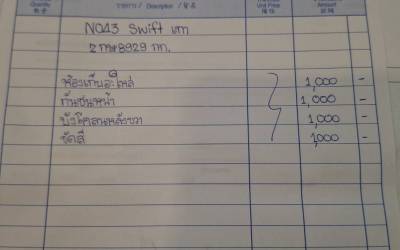 Quantity รายการ / Description / 品名 Unit Price Amount
数量 單價 金額
NO43 Swift เทา
2กษ8929 กท.
ห้องเก็บอะไหล่ 1,000 -
กันชนหน้า 1,000 -
บังโคลนหลังขวา 1,000 -
ขัดสี 1,000 -